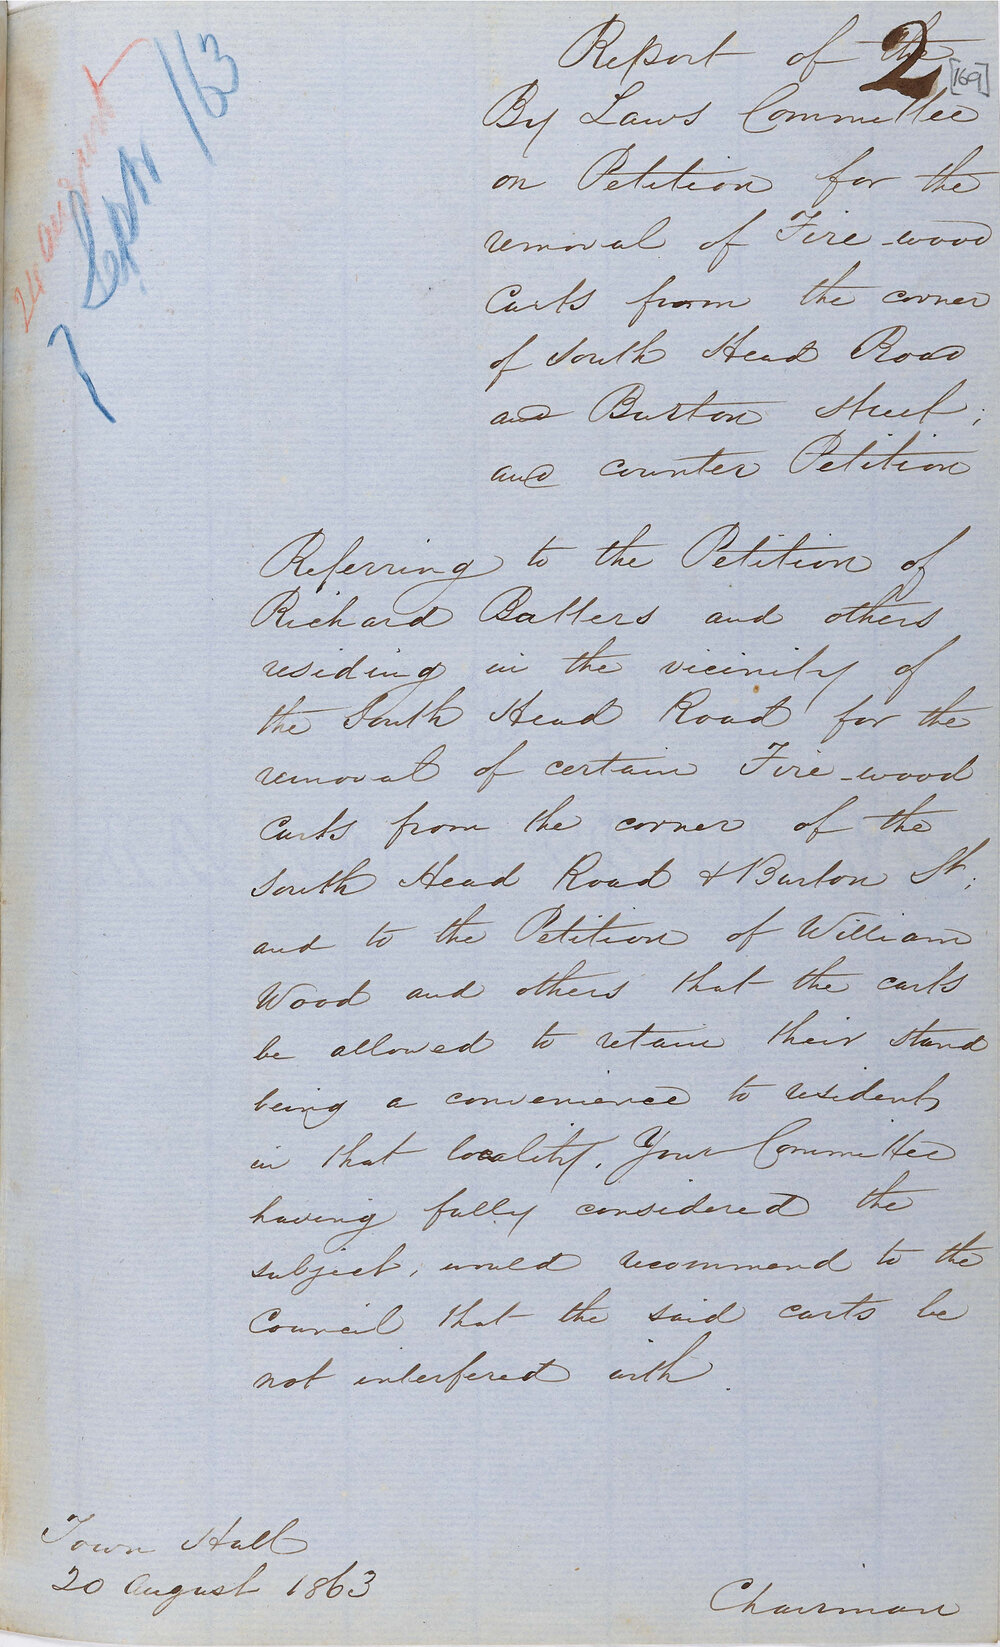 Report of the
2
[169]
By Laws Committee
on Petition for the
removal of Fire-wood
Carts from the corner
of South Head Road
and Burton street;
and counter Petition
7 Sept /63
Referring to the Petition of
Richard Batters and others
residing in the vicinity of
the South Head Road for the
removal of certain Fire-wood
Carts from the corner of the
South Head Road & Burton St;
and to the Petition of William
Wood and others that the carts
be allowed to retain their stand
being a convenience to residents
in that locality. Your Committee
having fully considered the
subject, would recommend to the
Council that the said carts be
not interfered with.
Town Hall
20 August 1863
Chairman